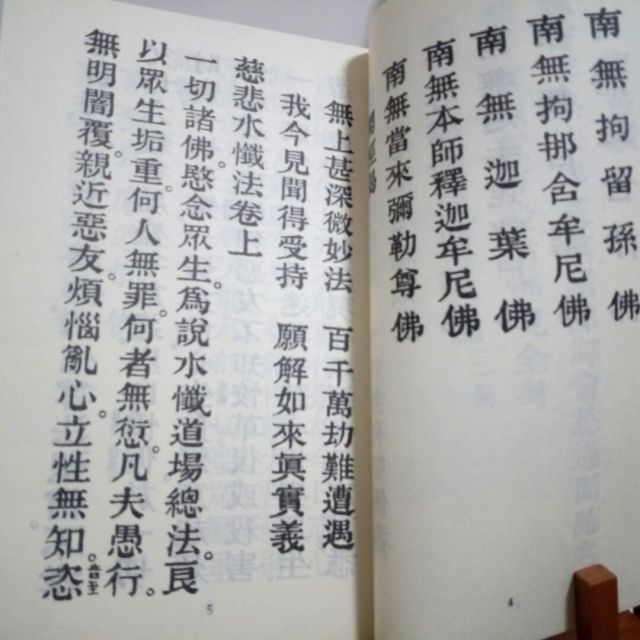 南無拘留孫佛
南無拘那含牟尼佛
南無迦葉佛
南無本師釋迦牟尼佛
南無當來彌勒尊佛
4
無上甚深微妙法 百千萬劫難遭遇
我今見聞得受持 願解如來眞實義
慈悲水懺法卷上
一切諸佛愍念眾生。爲說水懺道場總法。良
以眾生垢重。何人無罪。何者無愆。凡夫愚行。
無明闇覆。親近惡友。煩惱亂心。立性無知。恣
5